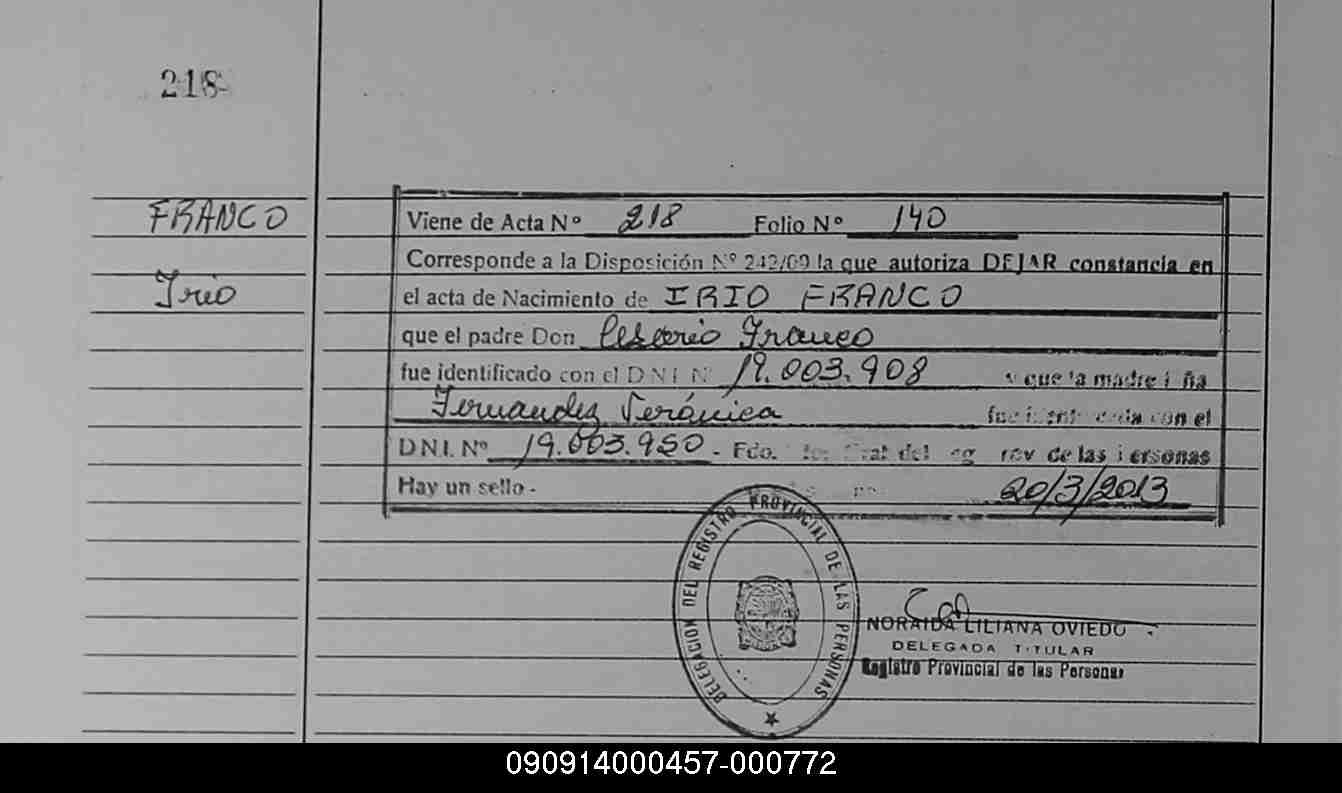 218
FRANCO
Irio
Viene de Acta Nº 218 Folio Nº 140
Corresponde a la Disposición Nº 242/09 la que autoriza DEJAR constancia en
el acta de Nacimiento de IRIO FRANCO
que el padre Don Cesario Franco
fue identificado con el D N I. N 19.003.908 y que la madre ña
Fernandez Verónica fue con el
D N.I. Nº 19.003.950 - Fdo. del de las Personas
Hay un sello - 20/3/2013
DELEGACION DEL REGISTRO PROVINCIAL DE LAS PERSONAS
NORAIDA LILIANA OVIEDO
DELEGADA TITULAR
Registro Provincial de las Personas
090914000457-000772